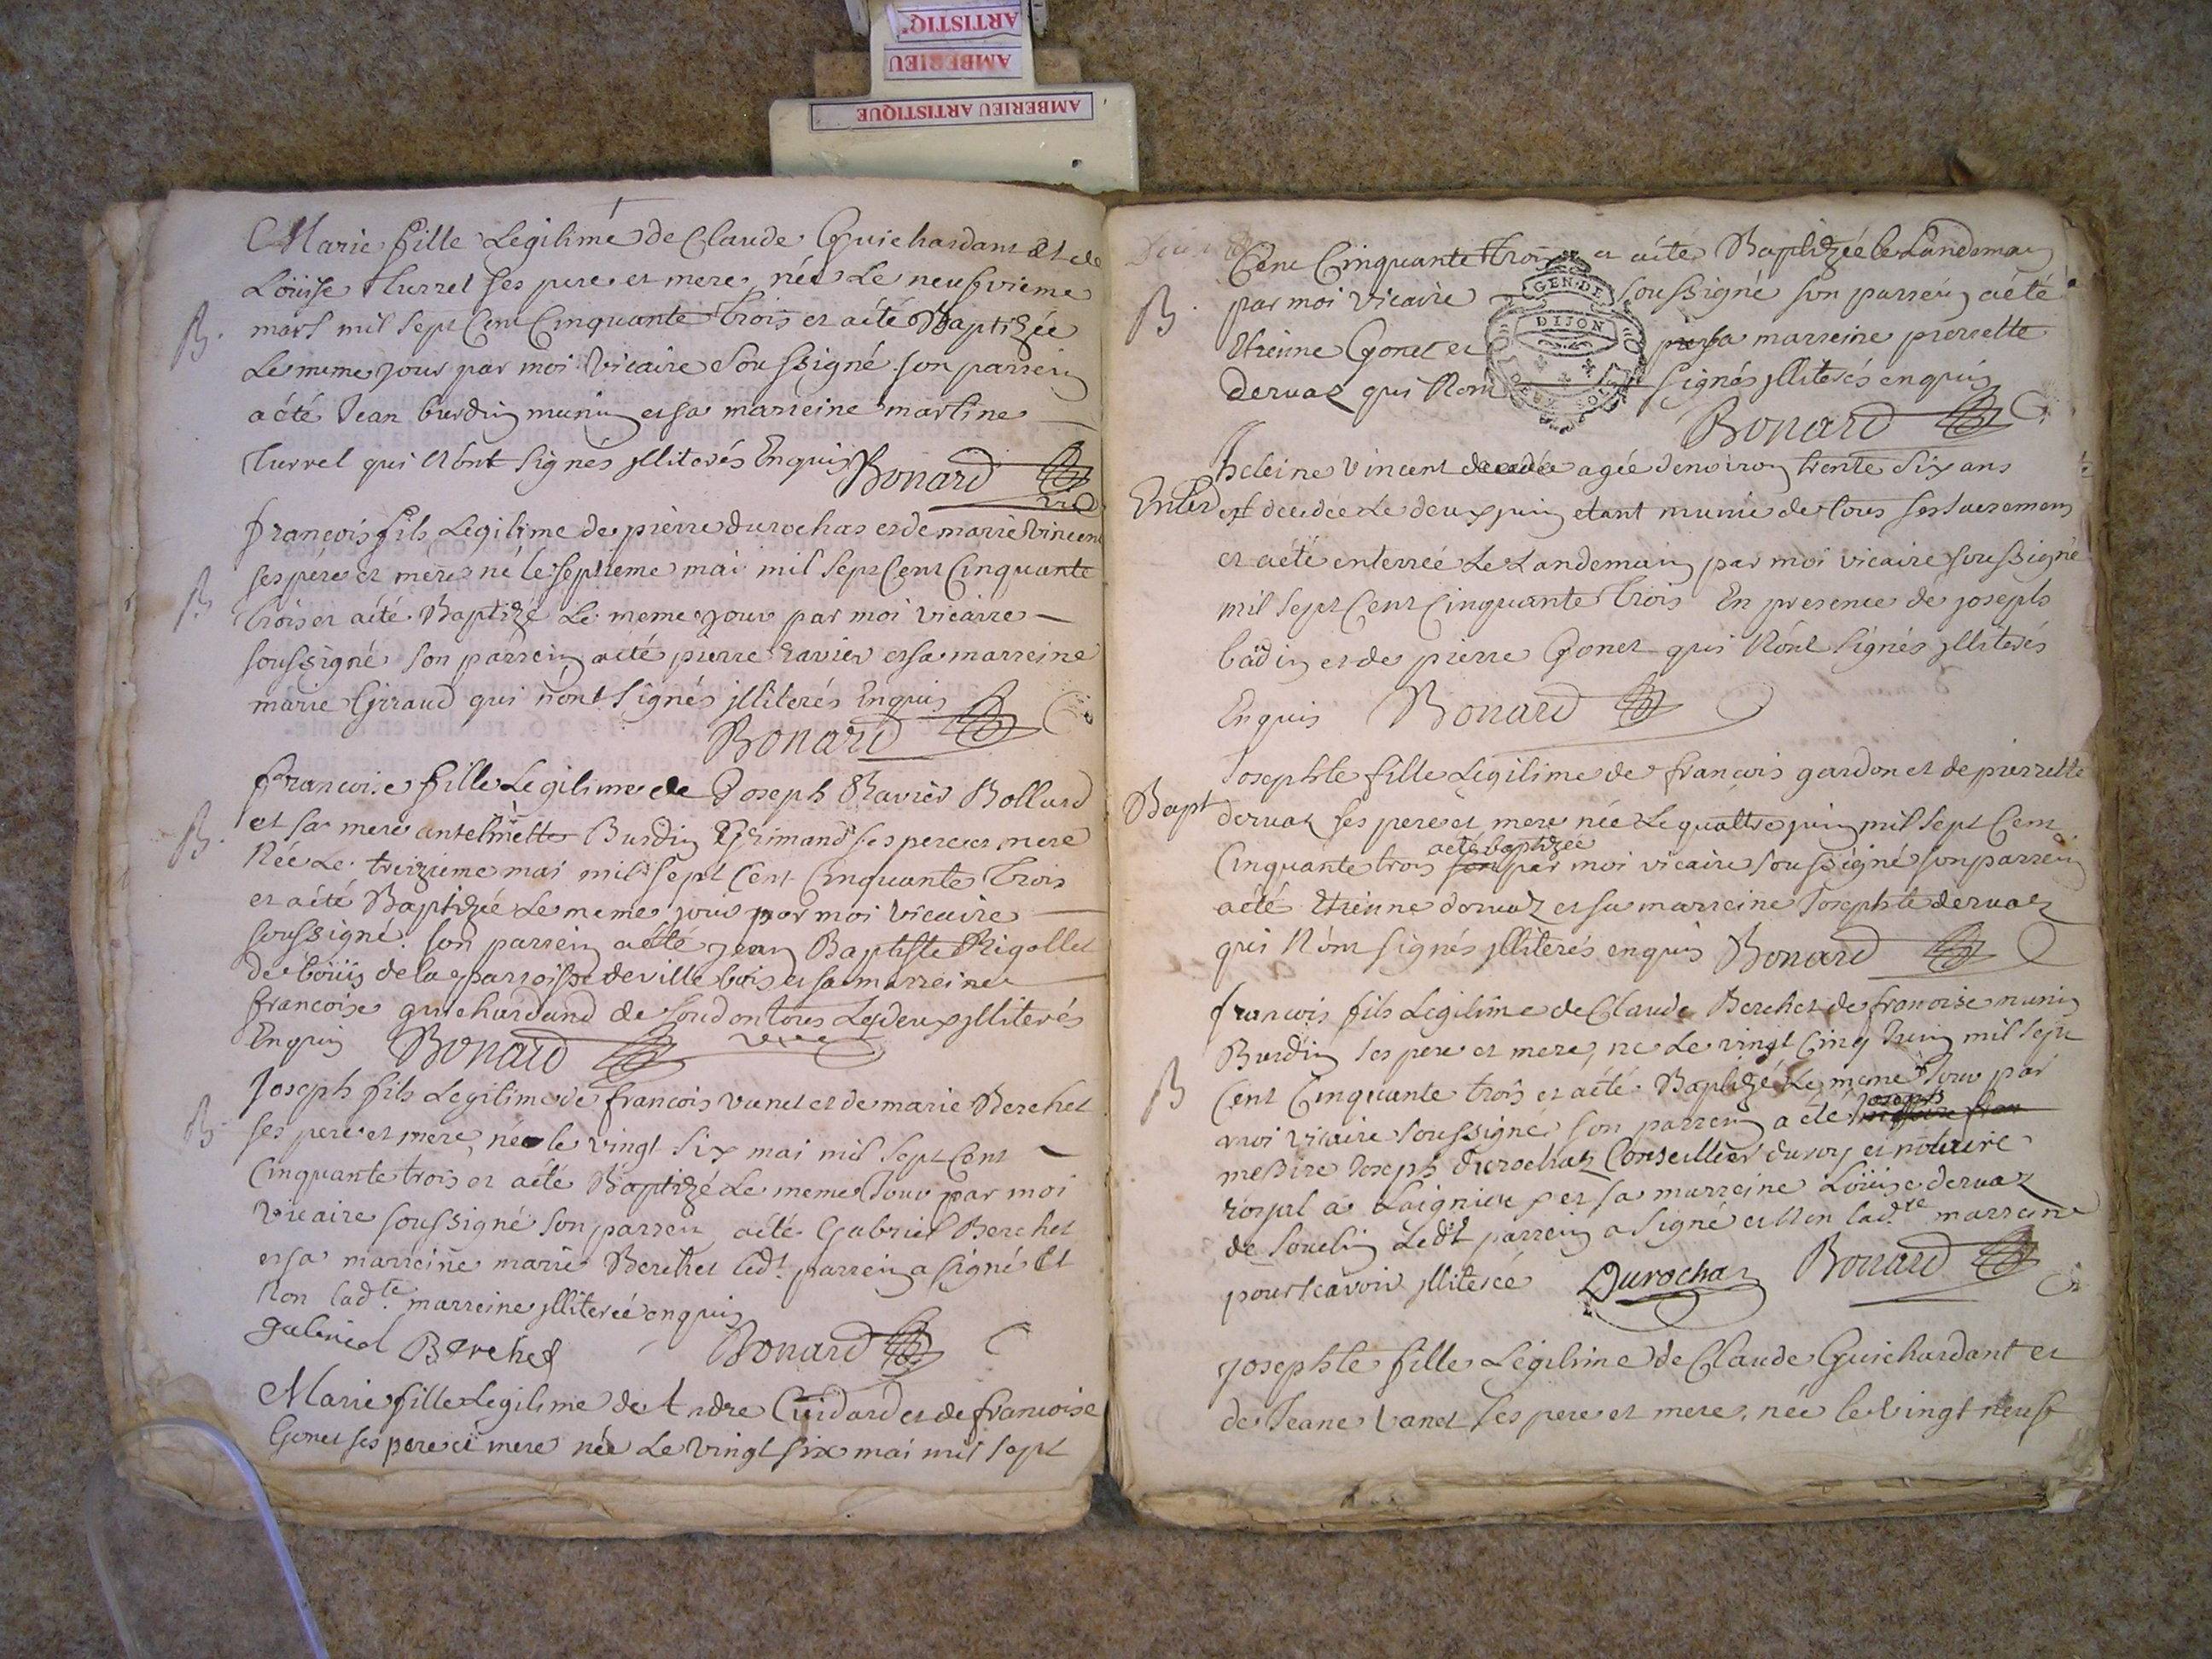 ARTISTIQ
AMBERIEU
AMBERIEU ARTISTIQUE
Marie fille Legitime de Claude Guichardant et de
Loüise Turrel ses pere et mere, née Le neufvieme
B.
mars mil sept Cent Cinquante Trois et aété Baptizée
Le meme jour par moi Vicaire Soussigné son parrein
a été Jean burdin munin et sa marreine martine
Turrel qui N'ont signés jlliterés Enquis Bonard
francois fils Legitime de pierre durochas et de marie Vincent
ses pére et mere né le septieme mai mil sept Cent Cinquante
B
trois et aété Baptizé Le meme jour par moi vicaire
soussigné son parrein aété pierre ravier et sa marreine
marie Girraud qui n'ont signés jlliterés Enquis
Bonard
francoise fille Legitime de Joseph Ravier Bollard
et sa mere antelmette Burdin Grimand ses pere et mere
B.
Née Le treizieme mai mil sept Cent Cinquante Trois
et aété Baptizée Le meme jour par moi Vicaire
soussigné son parrein aété jean Baptiste Rigollet
de boüis de la parroisse de ville bois et sa marreine
francoise guichardand de soudon tous Les deux jlliterés
Enquis Bonard
Joseph fils Legitime de francois vanet et de marie Berchet
B
ses pere et mere, né le vingt six mai mil sept Cent
Cinquante trois et aété Baptizé Le meme Jour par moi
Vicaire soussigné son parrein aété Gabriel Berchet
et sa marreine marie Berchet led.t parrein a signé Et
Non lad.te marreine jlliterée enquis
gabriel Berchet Bonard
Marie fille Legitime de Andre Cuidard et de francoise
Gonet ses pere et mere née Le vingt six mai mil sept
Cent Cinquante trois et aété Baptizée le Landemain
B.
par moi vicaire soussigné son parrein aété
Etienne Gonet et sa marreine pierrette
dervaz qui Nont signés jlliterés enquis
GEN. DE
DIJON
Bonard
heleine Vincent decedée agée denviron trente Six ans
Enter
est decedée Le deux juin etant munie de tous ses sacremens
et aété enterrée Le Landemain par moi vicaire soussigné
mil sept Cent Cinquante Trois En presence de joseph
badin et de pierre Gonet qui N'ont signés jlliterés
Enquis Bonard
Josephte fille Legitime de francois gardon et de pierrette
Bapt
dervaz ses pere et mere née Le quattre juin mil sept Cent
aété baptizée
Cinquante trois par moi vicaire soussigné son parrein
aété Etienne dervaz et sa marreine Josephte dervaz
qui N'ont signés jlliterés enquis Bonard
francois fils Legitime de Claude Berchet de francoise munin
Burdin ses pere et mere, né Le vingt Cinq Juin mil sept
B
Cent Cinquante trois et aété Baptizé Le meme Jour par
joseph
moi vicaire soussigné son parrein a été
messire Joseph durochat Conseiller du roy et notaire
royal a Laignieux et sa marreine Loüise dervaz
de souclin Ledt parrein a signé et Non lad.te marreine
pour scavoir jlliterée Durochat Bonard
josephte fille Legitime de Claude Guichardant et
de Jeane vanet ses pere et mere, née le vingt neuf